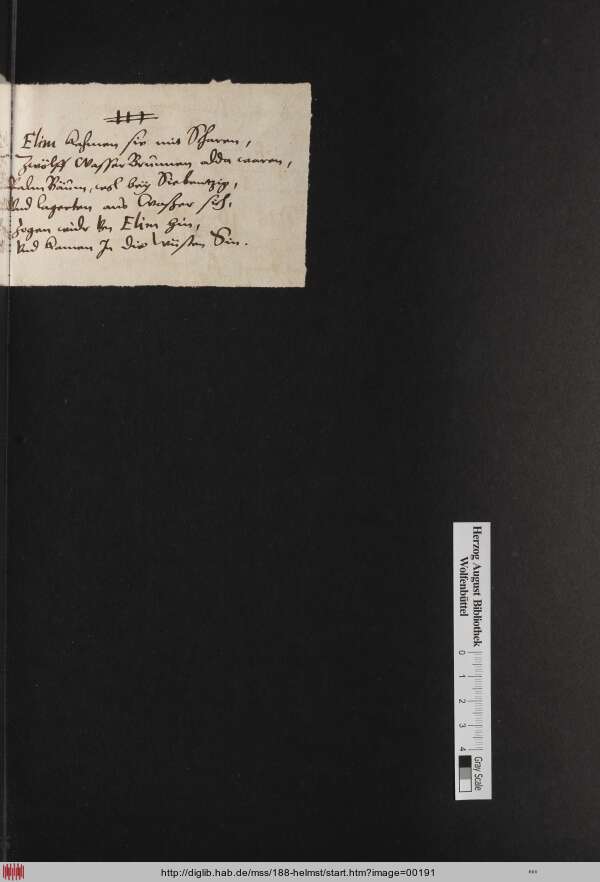 Elim kahmen sie mit Scharen,
Zwölff Wasser Brunnen alda waren,
Palm Bäum, wol bey Siebentzig,
Vnd lagerten ans Wasser sich,
Zogen wider Von Elim hin,
Vnd kamen In die Wüsten Sin.
Herzog August Bibliothek
Wolfenbüttel
0 1 2 3 4
Gray Scale
http://diglib.hab.de/mss/188-helmst/start.htm?image=00191